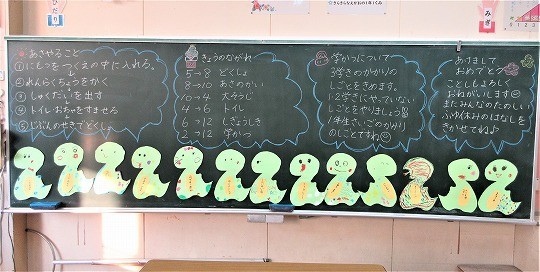 ひだり
みぎ
あさやること
①にもつをつくえの中に入れる。
②れんらくちょうをかく
③しゅくだいを出す
④トイレ・おちゃをすませる
⑤じぶんのせきでどくしょ
きょうのながれ
5→8 どくしょ
8→10 あさのかい
10→4 大そうじ
4→6 トイレ
6→12 しぎょうしき
2→12 学かつ
学かつについて
3学きのかかりの
しごとをきめます。
1・2学きにやっていない
しごとをやりましょう
1年生さいごのかかり
のしごとですね
あけまして
おめでとう
ことしもよろしく
おねがいします
またみんなのたのしい
ふゆ休みのはなしを
きかせてね♪